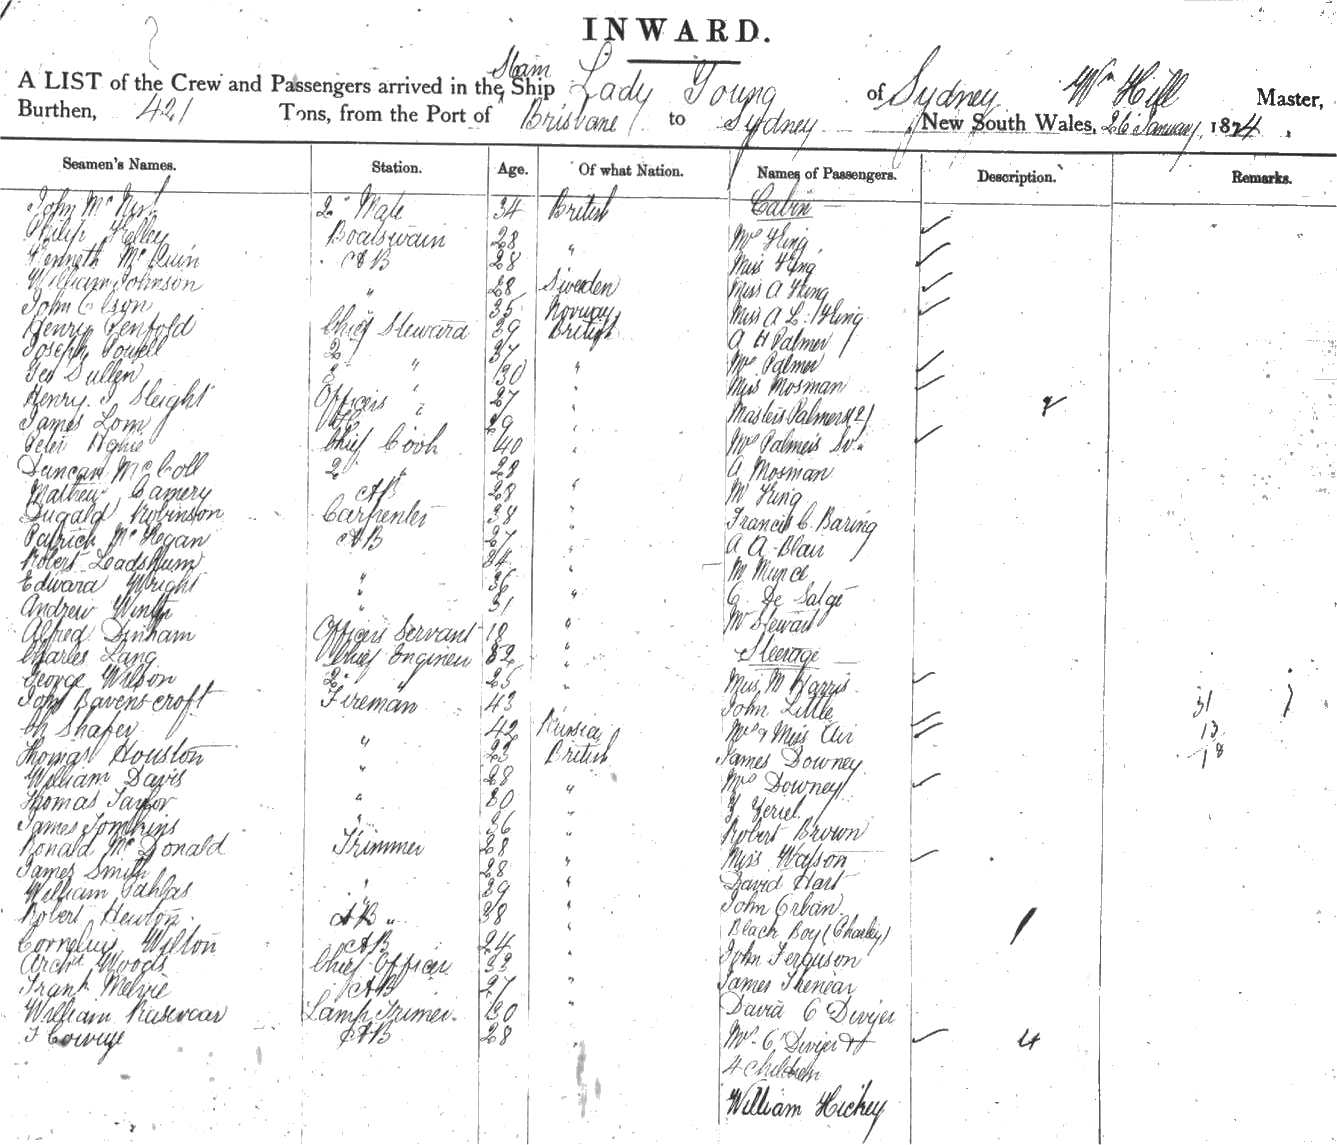 INWARD.
A LIST of the Crew and Passengers arrived in the Steam Ship Lady Young of Sydney Wm Hill Master,
Burthen, 421 Tons, from the Port of Brisbane to Sydney New South Wales, 26 January 1874.
Seamen's Names. Station. Age. Of what Nation. Names of Passengers. Description. Remarks.
John Mc 2" Mate 34 British Cabin
Philip Kelley Boatswain 28 " Mrs King
Kenneth McQuin AB 28 Miss King
William Johnson " 28 Sweden Miss A King
John Olson " 35 Norway Miss A L. King
Henry Penfold Chief Steward 29 British A H Palmer
Joseph Powell 2 " 37 Mrs Palmer
Geo Sullen 3 " 30 " Miss Mosman
Henry J Sleight Officers " 27 " Masters Palmer (2) 2
James 29 " Mrs Palmer's
Peter Chief Cook 40 " A Mosman
Duncan McColl 2 " 28 Mr King
Mathew Camery AB 28 " Francis C. Baring
Dugald Robinson Carpenter 38 " A A Blair
Patrick McHegan AB 27 " Mr Munce
Robert 24 " C. De Satgé
Edward Wright " 36 " Mr Stewart
Andrew " 31 " Steerage
Alfred Dinham Officers Servant 18 " Miss M Harris
Charles Lang Chief Engineer 32 " John Little 31
George Wilson 2" 25 " Mrs & Miss Air 13
John Ravenscroft Fireman 43 James Downey 18
Ch Shafer 42 Russia Mrs Downey
Thomas Houston " 23 British
William Davis " 28 Robert Brown
Thomas Taylor " 30 " Miss Watson
James Tomkins " 36 " David Hart
Ronald McDonald Trimmer 28 " John
James Smith 28 " Black Boy (Charley)
William " 29 " John Ferguson
Robert Hewton AB " 38 " James
Cornelius Wilton AB 24 " David C Dwyer
Archd Woods Chief Officer 33 " Mrs C Dwyer & 4
Frank Melvie AB 27 " 4 Children
William Lamp Trimer 30 " William Hickey
AB 28 "